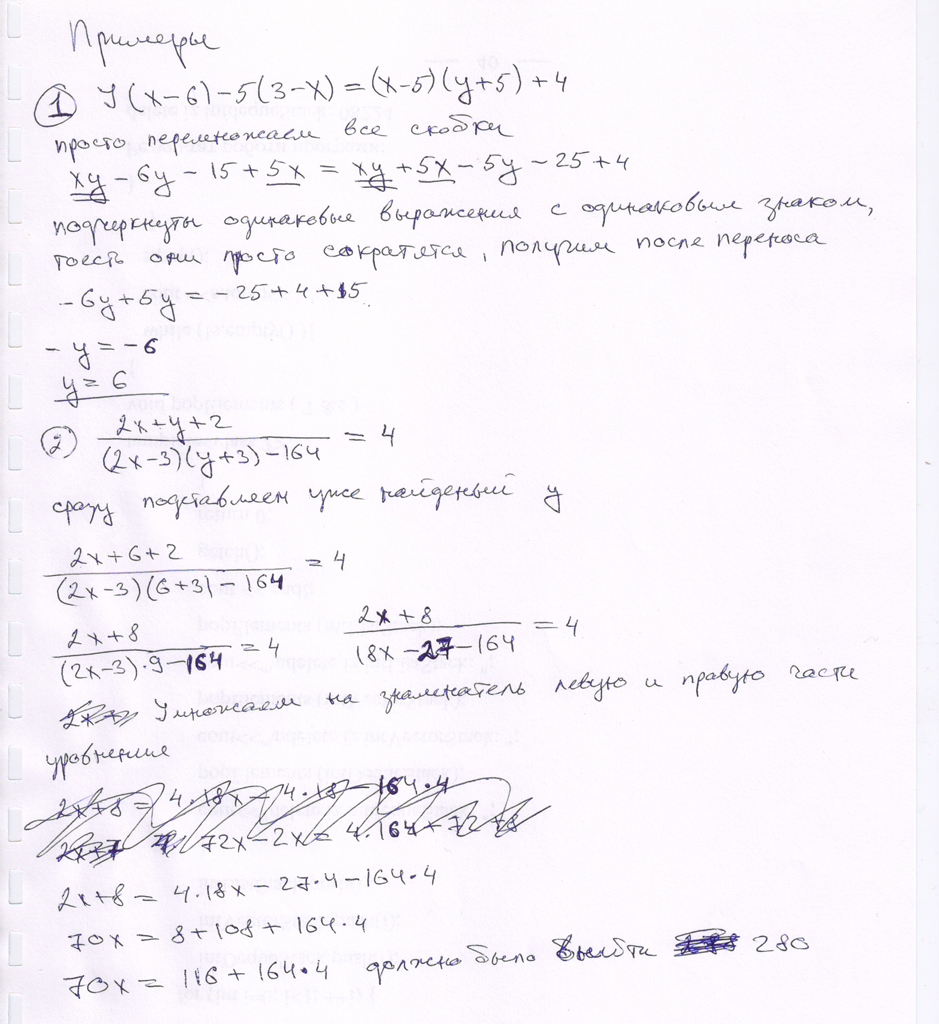 Примеры
① У(x-6)-5(3-x)=(x-5)(y+5)+4
просто перемножаем все скобки
xy-6y-15+5x=xy+5x-5y-25+4
подчеркнуты одинаковые выражения с одинаковым знаком,
тоесть они просто сократятся, получим после переноса
-6y+5y=-25+4+15
-y=-6
y=6
② (2x+y+2)/((2x-3)(y+3)-164) = 4
сразу подставляем уже найденый y
(2x+6+2)/((2x-3)(6+3)-164) = 4
(2x+8)/((2x-3)·9-164) = 4 (2x+8)/(18x-27-164) = 4
Умножаем на знаменатель левую и правую части
уравнение
2x+8=4·18x-4·18-164·4
72x-2x=4·164+72
2x+8=4·18x-27·4-164·4
70x=8+108+164·4
70x=116+164·4 должно было выйти 280